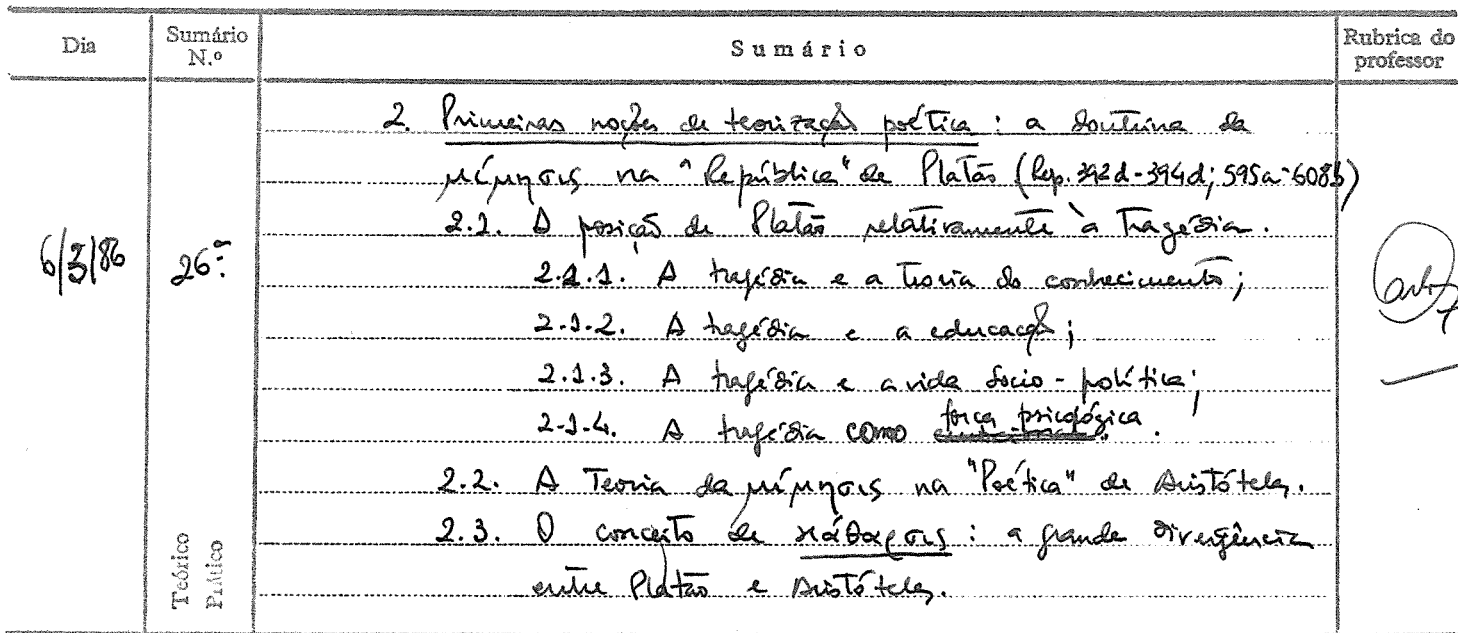 Dia
Sumário N.º
Sumário
Rubrica do professor
2. Primeiras noções de teorização poética : a doutrina da
μίμησις na "República" de Platão (Rep. 392d-394d; 595a-608b)
2.1. A posição de Platão relativamente à Tragédia.
6/3/86
26º
2.1.1. A tragédia e a teoria do conhecimento;
2.1.2. A tragédia e a educação;
2.1.3. A tragédia e a vida socio-política;
2.1.4. A tragédia como força psicológica.
2.2. A Teoria da μίμησις na "Poética" de Aristóteles.
2.3. O conceito de κάθαρσις : a grande divergência
entre Platão e Aristóteles.
Teórico
Prático